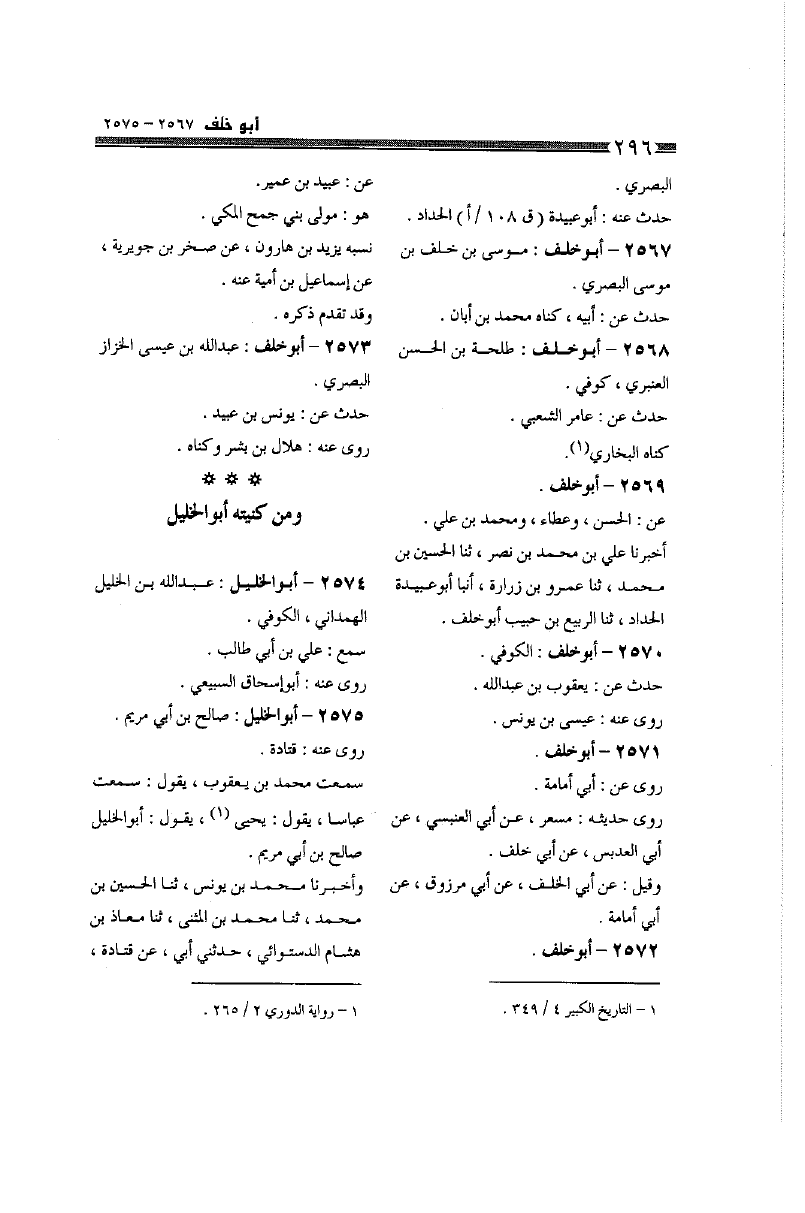 أبو خلف ٢٥٦٧ – ٢٥٧٥
٢٩٦
البصري .
حدث عنه : أبوعبيدة ( ق ١٠٨ / أ ) الحداد .
٢٥٦٧ – أبوخلف : موسى بن خلف بن
موسى البصري .
حدث عن : أبيه ، كناه محمد بن أبان .
٢٥٦٨ – أبوخلف : طلحة بن الحسن
العنبري ، كوفي .
حدث عن : عامر الشعبي .
كناه البخاري(١).
٢٥٦٩ – أبوخلف .
عن : الحسن ، وعطاء ، ومحمد بن علي .
أخبرنا علي بن محمد بن نصر ، ثنا الحسين بن
محمد ، ثنا عمرو بن زرارة ، أنبا أبوعبيدة
الحداد ، ثنا الربيع بن حبيب أبوخلف .
٢٥٧٠ – أبوخلف : الكوفي .
حدث عن : يعقوب بن عبدالله .
روى عنه : عيسى بن يونس .
٢٥٧١ – أبوخلف .
روى عن : أبي أمامة .
روى حديثه : مسعر ، عن أبي العنبسي ، عن
أبي العدبس ، عن أبي خلف .
وقيل : عن أبي الخلف ، عن أبي مرزوق ، عن
أبي أمامة .
٢٥٧٢ – أبوخلف .
١ – التاريخ الكبير ٤ / ٣٤٩ .
عن : عبيد بن عمير.
هو : مولى بني جمح المكي .
نسبه يزيد بن هارون ، عن صخر بن جويرية ،
عن إسماعيل بن أمية عنه .
وقد تقدم ذكره .
٢٥٧٣ – أبوخلف : عبدالله بن عيسى الخزاز
البصري .
حدث عن : يونس بن عبيد .
روى عنه : هلال بن بشر وكناه .
* * *
ومن كنيته أبوالخليل
٢٥٧٤ – أبوالخليل : عبدالله بن الخليل
الهمداني ، الكوفي .
سمع : علي بن أبي طالب .
روى عنه : أبوإسحاق السبيعي .
٢٥٧٥ – أبوالخليل : صالح بن أبي مريم .
روى عنه : قتادة .
سمعت محمد بن يعقوب ، يقول : سمعت
عباسا ، يقول : يحيى (١) ، يقول : أبوالخليل
صالح بن أبي مريم .
وأخبرنا محمد بن يونس ، ثنا الحسين بن
محمد ، ثنا محمد بن المثنى ، ثنا معاذ بن
هشام الدستوائي ، حدثني أبي ، عن قتادة ،
١ – رواية الدوري ٢ / ٢٦٥ .